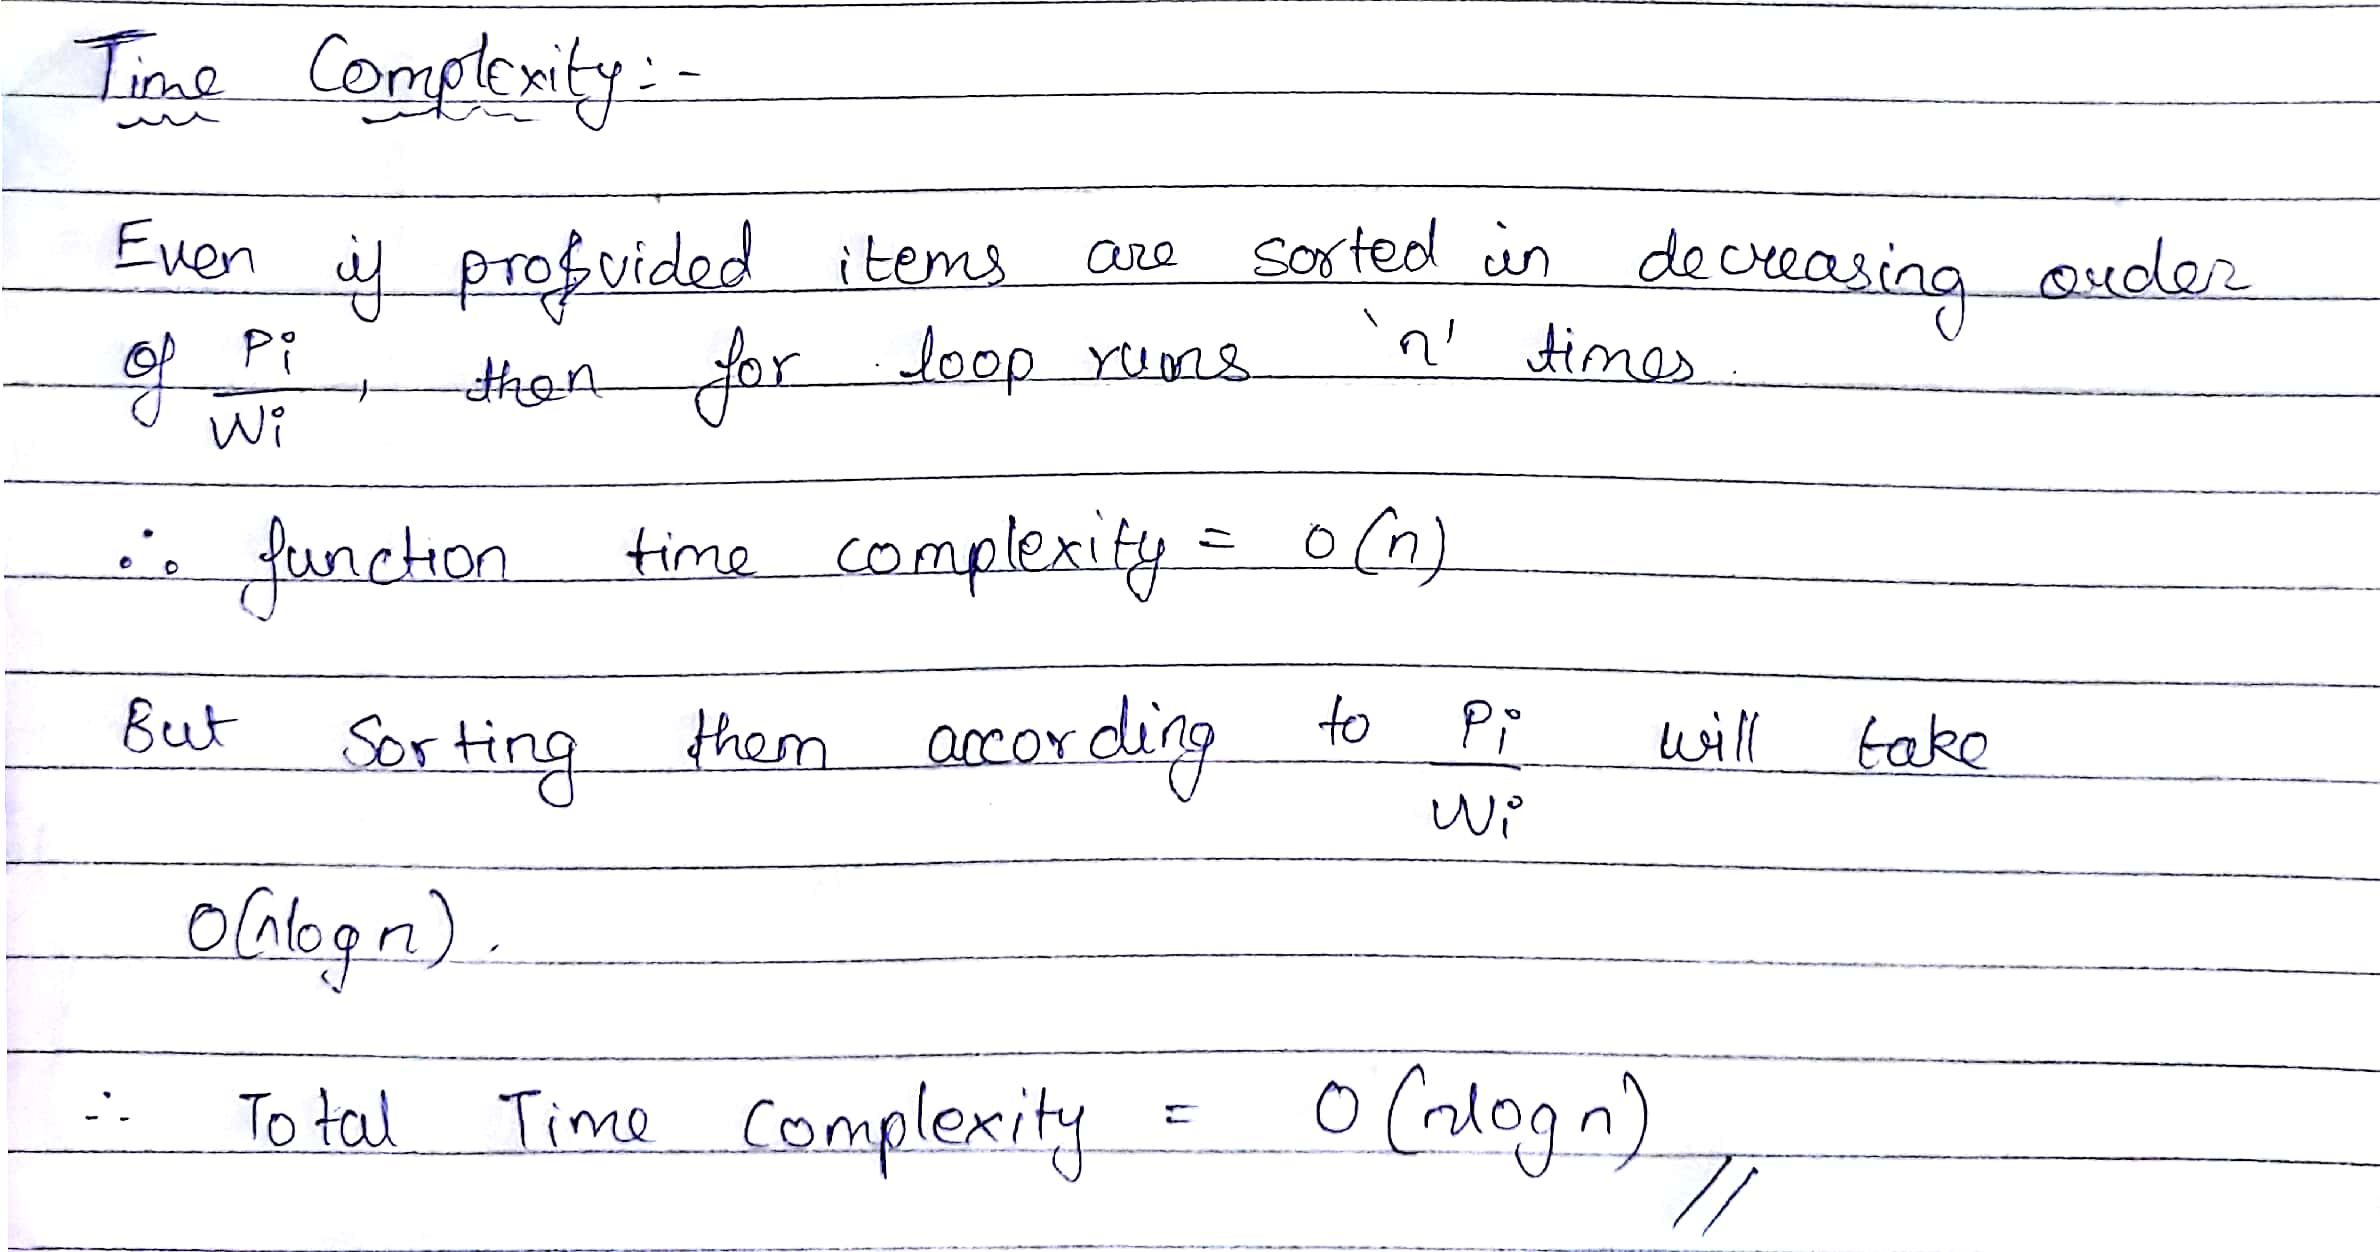 Time Complexity :-
Even if provided items are sorted in decreasing order
of Pi/Wi, then for loop runs 'n' times.
∴ function time complexity = O(n)
But Sorting them according to Pi/Wi will take
O(nlogn).
∴ Total Time Complexity = O(nlogn) //